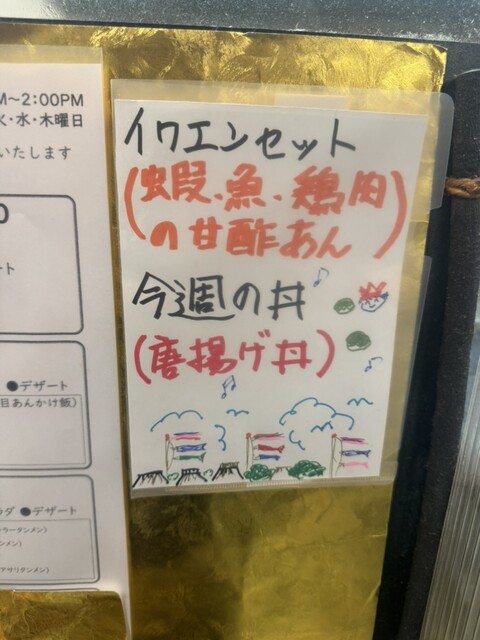 M〜2:00PM
火・水・木曜日
いたします
ート
●デザート
目あんかけ飯)
ダ ●デザート
ラータンメン)
ンメン)
アサリタンメン)
イワエンセット
(蝦、魚、鶏肉
の甘酢あん)
今週の丼
(唐揚げ丼)